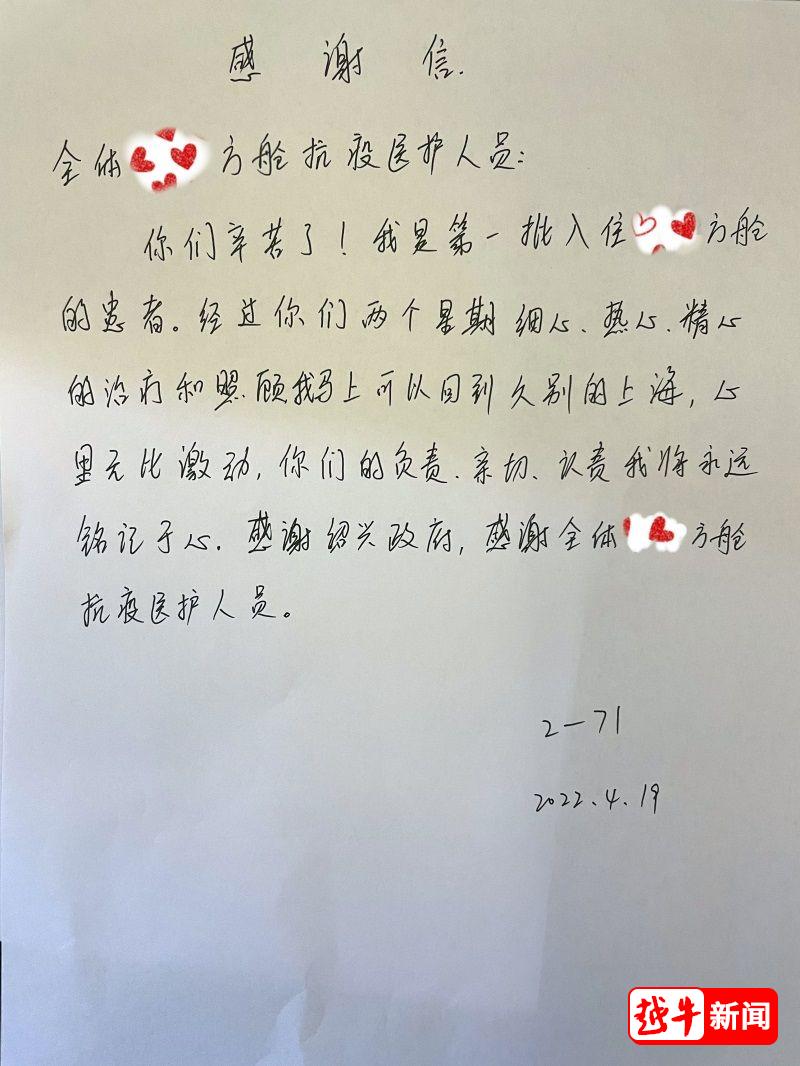 感谢信.
全体方舱抗疫医护人员:
你们辛苦了!我是第一批入住方舱
的患者。经过你们两个星期细心、热心、精心
的治疗和照顾我马上可以回到久别的上海,心
里无比激动,你们的负责、亲切、认责我将永远
铭记于心.感谢绍兴政府,感谢全体方舱
抗疫医护人员。
2-71
2022.4.19
越牛新闻